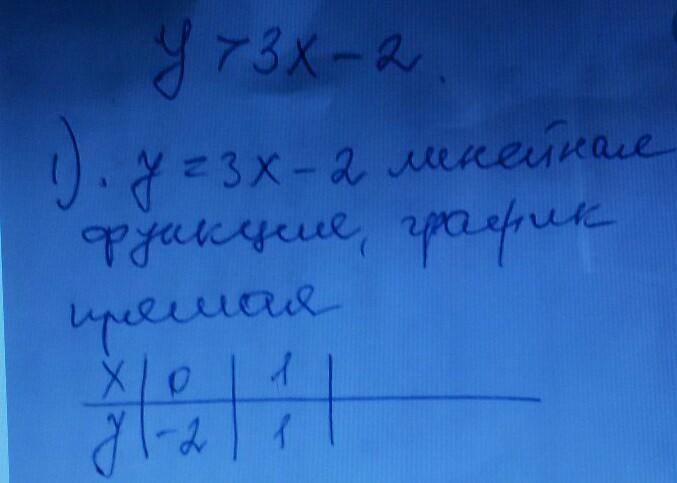 y > 3x - 2.
1). y = 3x - 2 линейная
функция, график
прямая
x | 0 | 1 |
y | -2 | 1 |